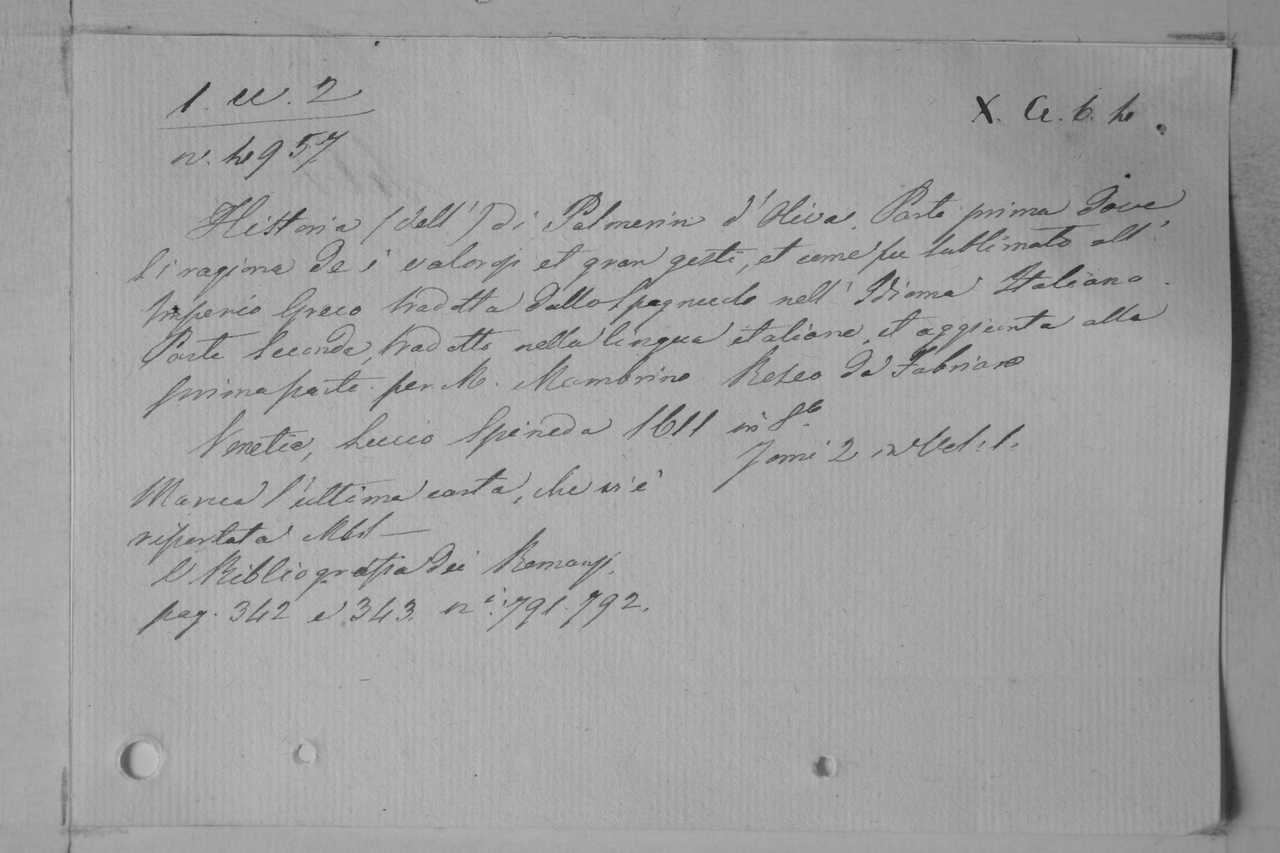 1. u. 2
n. 4957
X. a. 6. 4.
Historia (dell') di Palmerin d'Oliva. Parte prima dove
si ragiona de i valorosi et gran gesti, et come fu sublimato all'
Imperio Greco tradotta dallo Spagnuolo nell' Idioma Italiano.
Parte Seconda, tradotta nella lingua italiana, et aggiunta alla
prima parte per M. Mambrino Roseo da Fabriano
Venetia, Lucio Spineda 1611 in 8.º
Tomi 2 in Vol. 1.
Manca l'ultima carta, che si è
riportata
V. Bibliografia dei Romanzi,
pag. 342 e 343. n.i 791. 792.